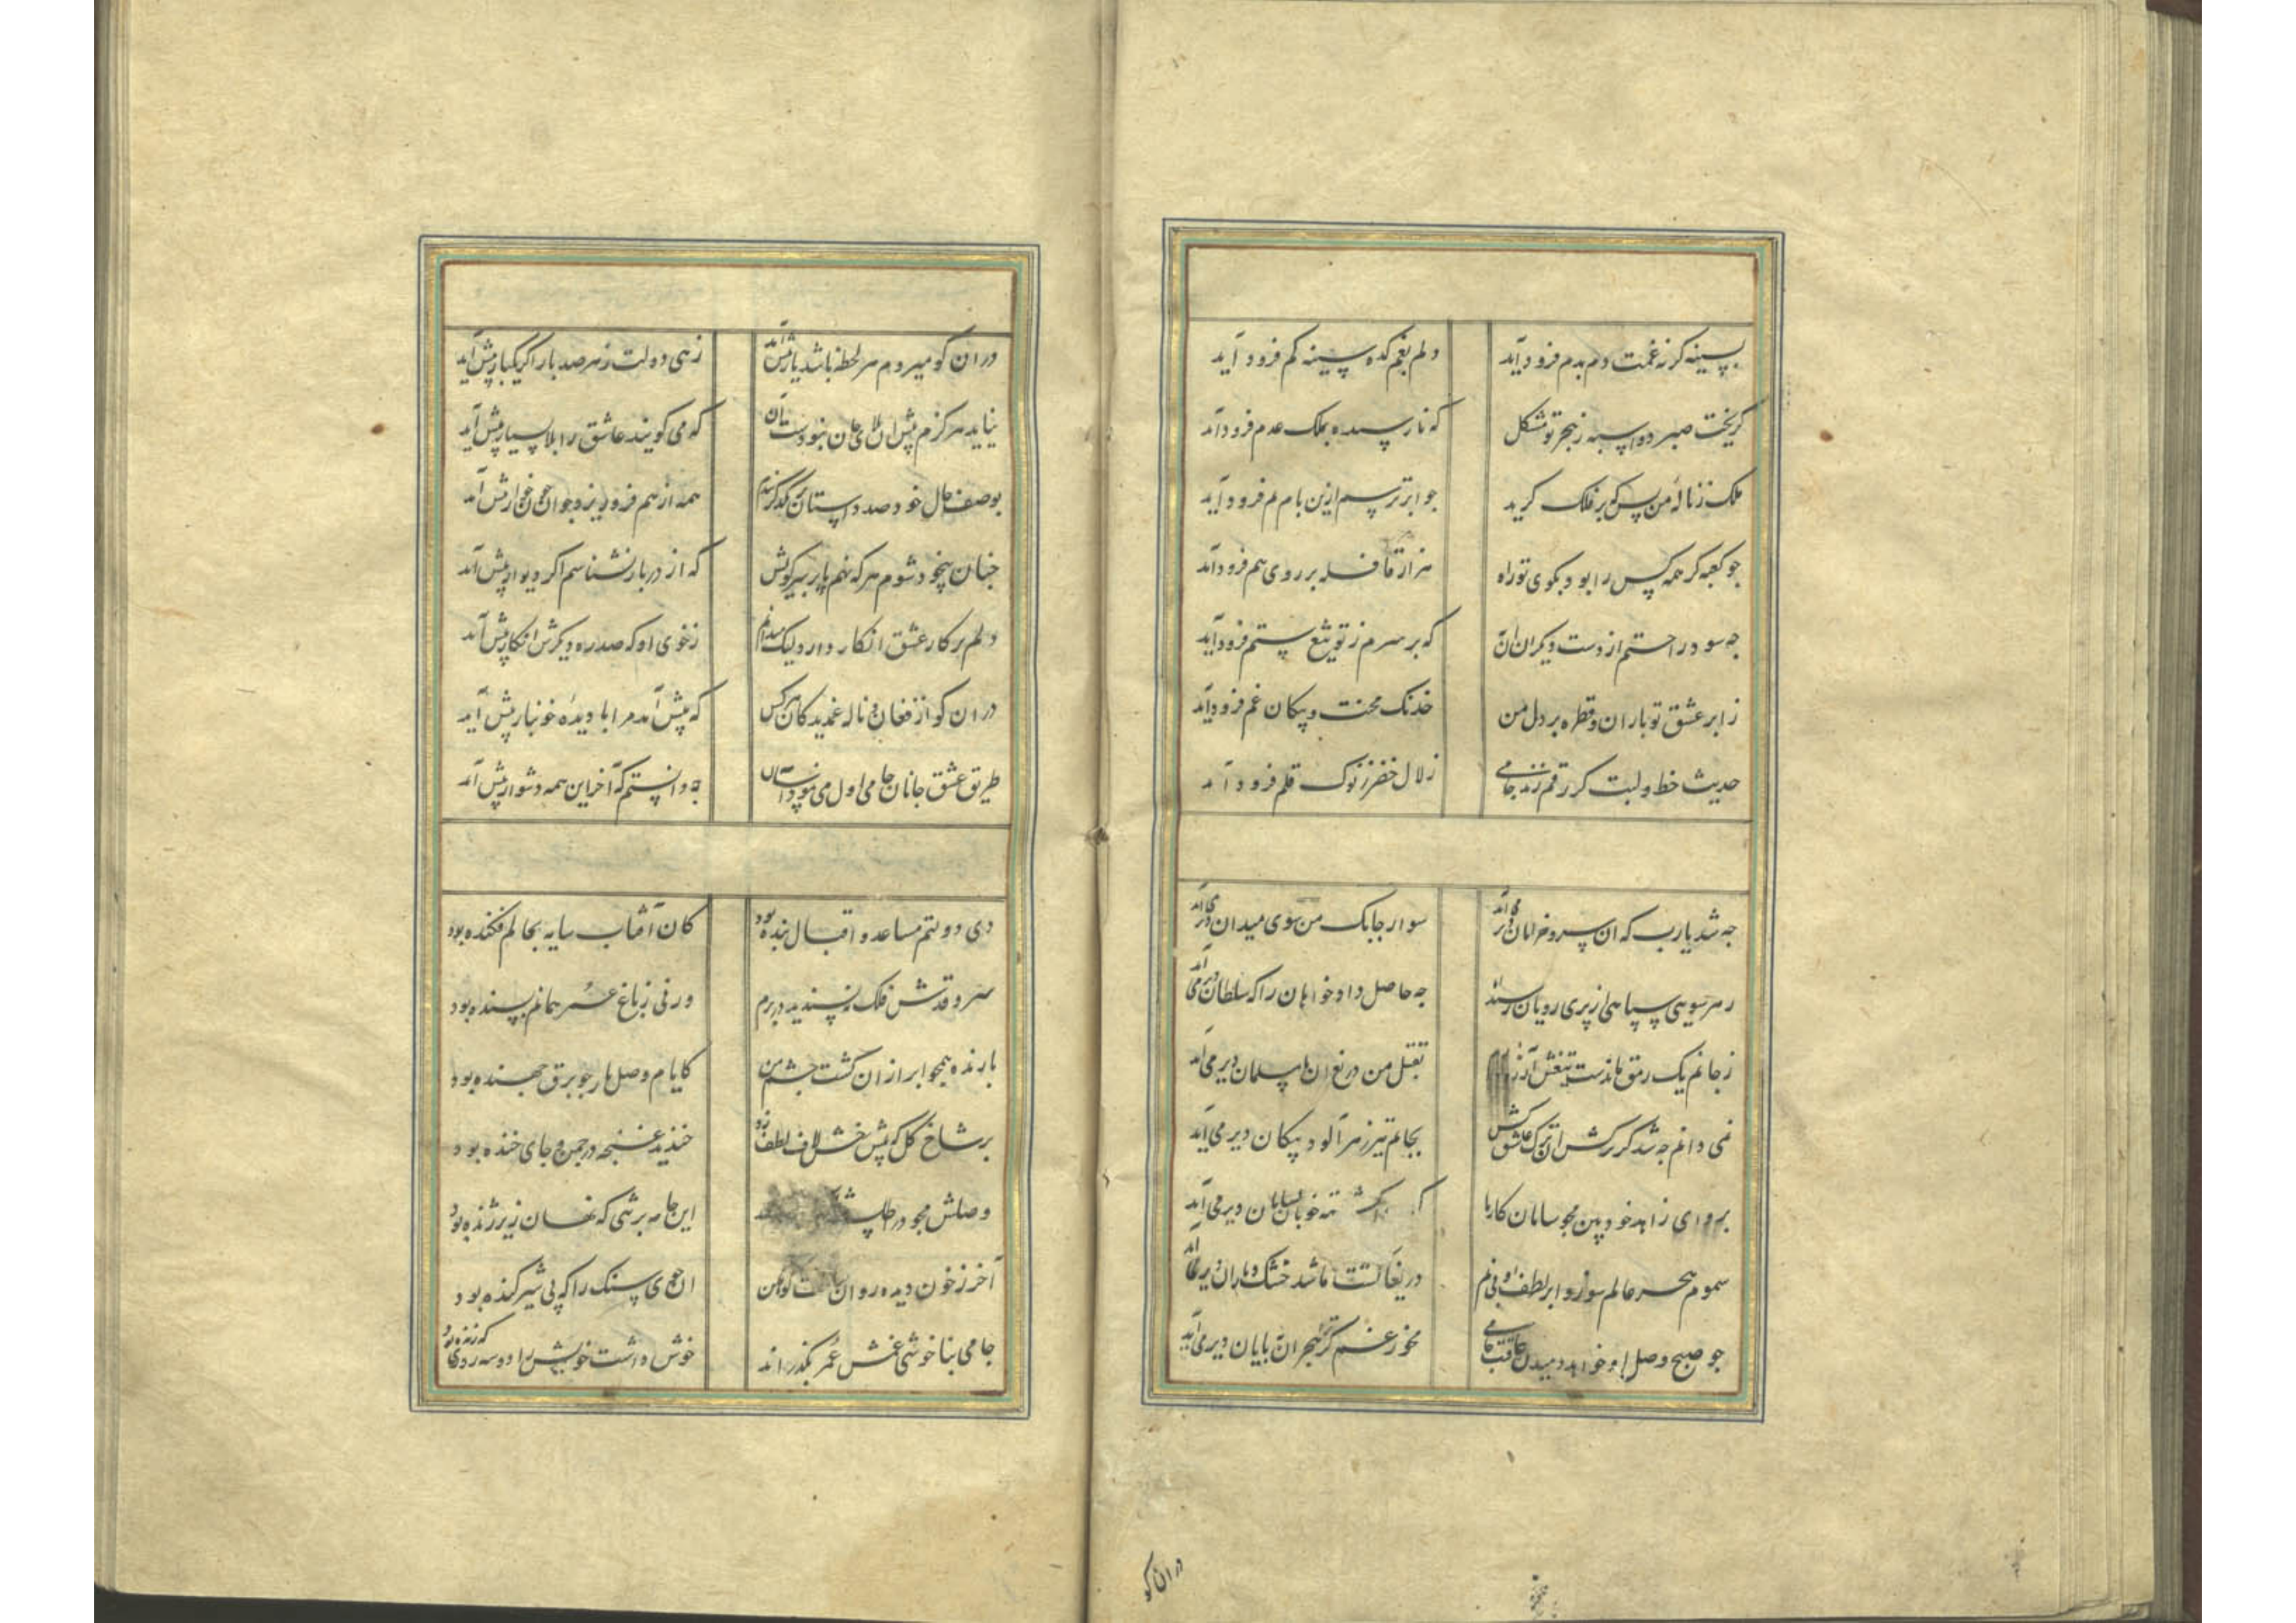 بسینه کز نه غمت دم بدم فرود آید دلم بغم کده سینه کم فرود آید
کریخت صبر دو اسبه ز هجر تو مشکل که نارسیده بملک عدم فرود آید
ملک ز نالهٔ من بس که بر فلک کرید جو ابر ترسم ازین بام نم فرود آید
جو کعبه کر همه کس را بود بکوی تو راه هزار قافله بر روی هم فرود آید
جه سود راحتم از دست دیکران آن که بر سرم ز تو تیغ ستم فرود آید
ز ابر عشق تو باران و قطره بر دل من خدنک محنت و پیکان غم فرود آید
حدیث خط و لبت کر رقم زند جامی زلال خضر ز نوک قلم فرود آید
جه شد یارب که ان سرو خرامان دیر می آید سوار جابک من سوی میدان دیر می آید
ز هر سویی سپاهی از پری رویان رسند جه حاصل داد خواهان را که سلطان دیر می آید
ز جانم یک رمق ماندست تیغش آرزو بقتل من دریغ ان نامسلمان دیر می آید
نمی دانم جه شد کز ترکش ان ترک عاشق کش بجانم تیر زهر آلود پیکان دیر می آید
برو ای زاهد خود بین مجو سامان کار ما که خوبان بسامان دیر می آید
سموم هجر عالم سوز و ابر لطف او بی نم دریغا کشت ما شد خشک و باران دیر می آید
جو صبح وصل او خواهد دمیدن عاقبت جامی مخور غم کر شب هجران بپایان دیر می آید
دران کو
دران کو میروم هر لحظه باشد یار پیش آید زهی دولت ز هر صد بار اکر یکبار پیش آید
نیاید هرکزم پیش ان بلای جان نبودست آن که می کویند عاشق را بلا بسیار پیش آید
بوصف حال خود صد داستان همه از هم فرو ریزد جو ان خونخوار پیش آید
جنان بیخود شوم هر که نهم پا بر سر کویش که از در باز نشناسم اکر دیوار پیش آید
دلم بر کار عشق انکار دارد لیک میدانم ز خوی او که صد ره دیکرش انکار پیش آید
دران کو از فغان و ناله غمدیدکان هر کس که پیش آمد مرا با دیدهٔ خونبار پیش آید
طریق عشق جانان جامی اول می نمود آسان جه دانستم که آخر این همه دشوار پیش آید
دی دولتم مساعد و اقبال بنده بود کان آفتاب سایه بحالم فکنده بود
سرو قدش فلک نپسندید در برم ورنی ز باغ عمر همانم بسنده بود
بارنده همجو ابر ازان کشت جشم من کایام وصل یار جو برق جهنده بود
بر شاخ کل که پیش رخش لاف لطف زد خندید غنجه در جمن و جای خنده بود
وصلش مجو در اطلس این جامه بر تنی که نهان زیر ژنده بود
آخر ز خون دیده روان ساخت کوهکن ان جوی سنک را که پی شیر کنده بود
جامی بناخوشی غمش عمر بکذراند خوش داشت خویش را دو سه روزی که زنده بود